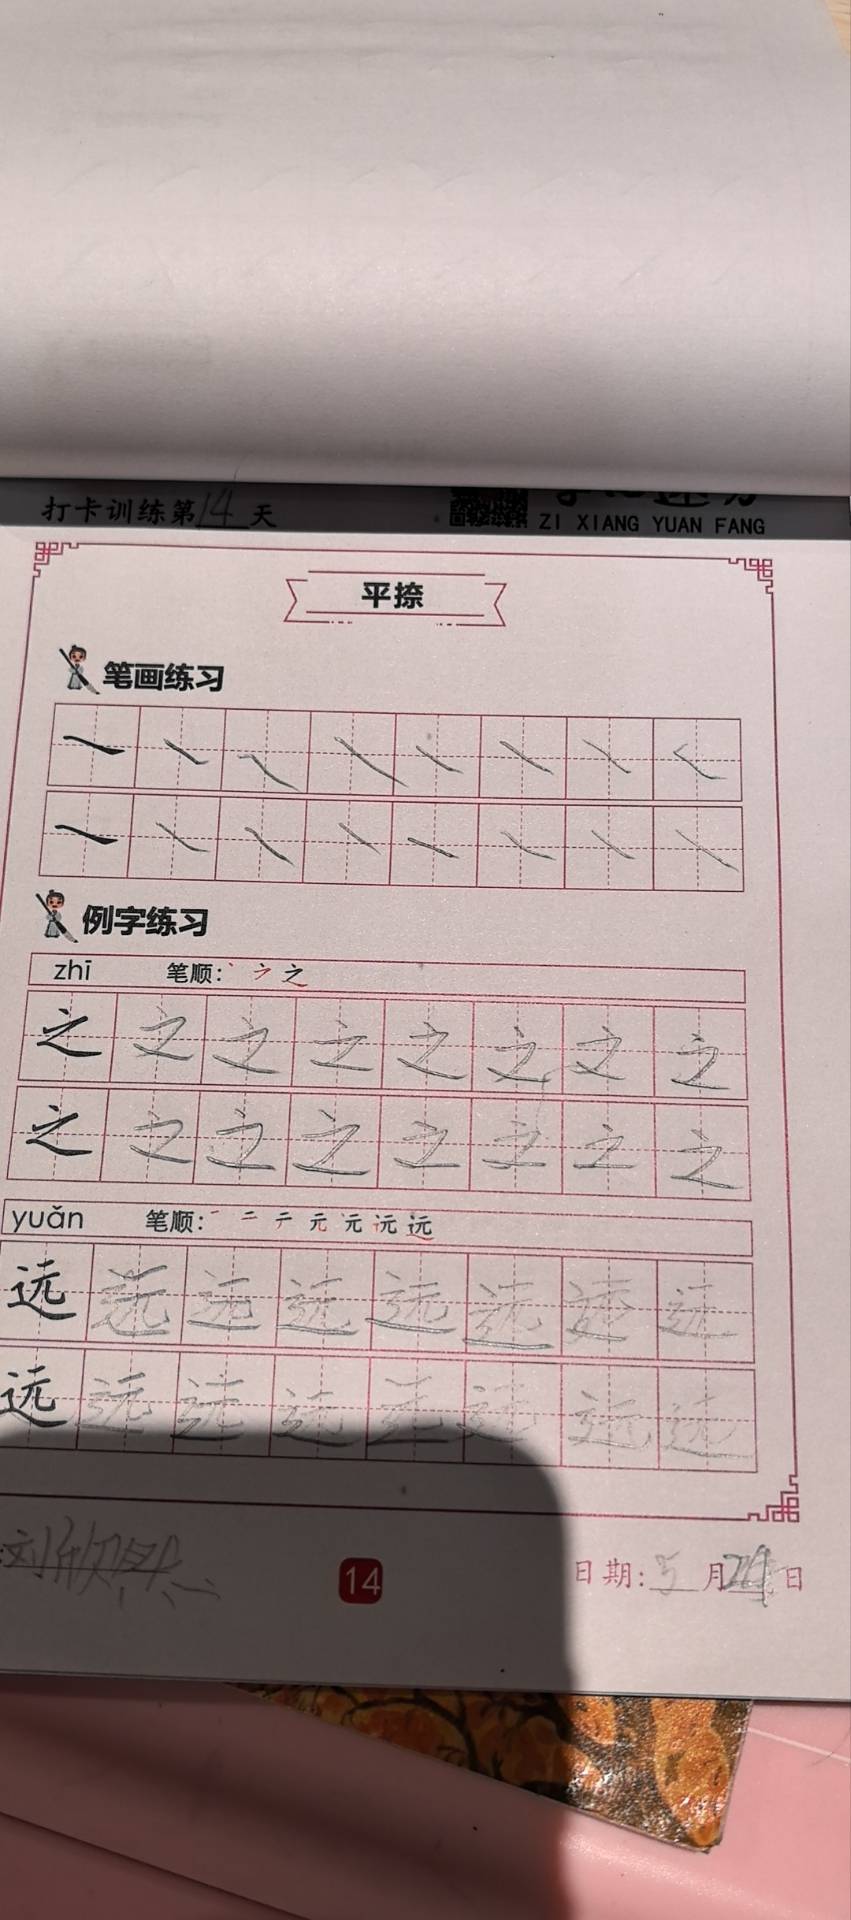 打卡训练第14天
ZI XIANG YUAN FANG
平捺
笔画练习
例字练习
zhī 笔顺: 丶 之
之 之 之 之 之 之 之 之
之 之 之 之 之 之 之 之
yuǎn 笔顺: 一 二 テ 元 元 沅 远
远 远 远 远 远 远 远 远
远 远 远 远 远 远 远 远
刘欣
14
日期: 5 月 日